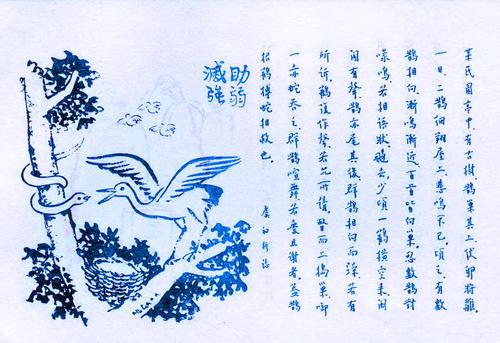 某氏園亭中，有古樹，鵲巢其上，伏卵將雛。
一日，二鵲徊翔屋上，悲鳴不已。頃之，有數
鵲相向，漸鳴漸近，百首皆向巢。忽數鵲對
喙鳴，若相語狀，颺去。少頃，一鸛橫空來，閣
閣有聲，鵲亦尾其後。群鵲相向而噪，若有
所訴。鸛復作聲，若允所請。瞥而上搗巢，啣
一赤蛇吞之。群鵲喧舞，若慶且謝者。蓋鵲
招鸛搏蛇相救也。
虞初新志
助弱
滅强